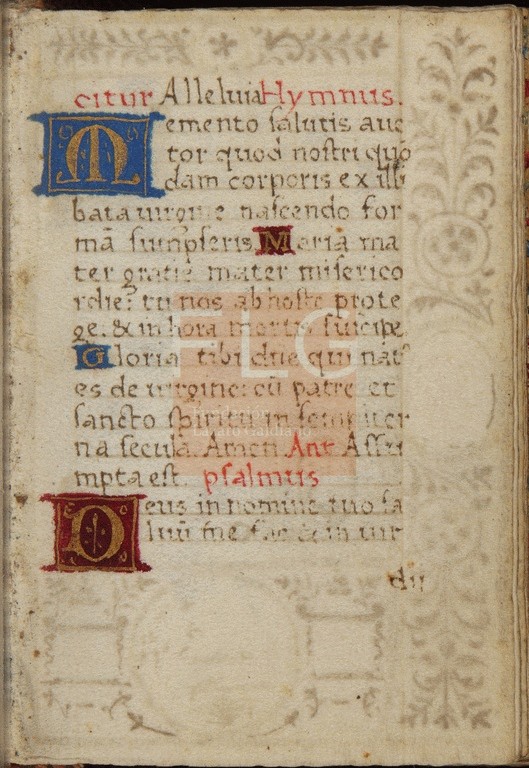 citur Alleluia Hymnus.
Memento salutis auc
tor quod nostri quō
dam corporis ex illi
bata uirgine nascendo for
mā sumpseris Maria ma
ter gratię mater miserico
rdie: tu nos ab hoste prote
ge. & in hora mortis suscipe
Gloria tibi dn̄e qui nat⁹
es de uirgine: cū patre et
sancto spiritu in sempiter
na secula. Amen Ant̄ Assu
mpta est. psalmus
Deus in nomine tuo sa
luū me fac & in uir
FLG
Lázaro Galdiano